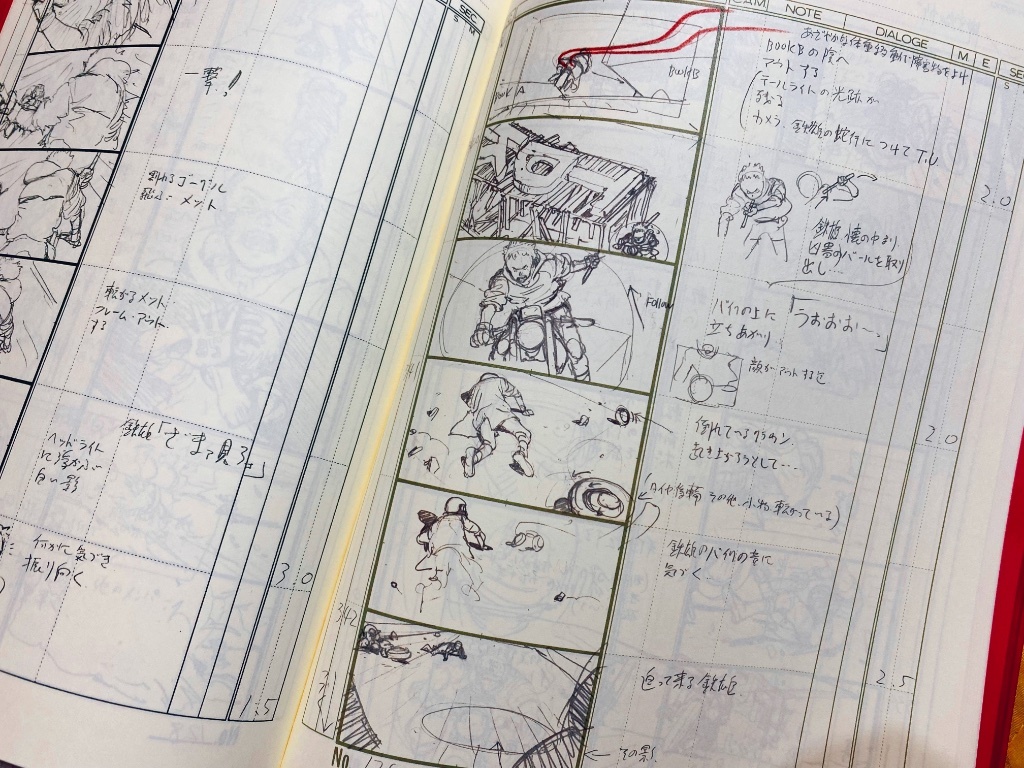 SEC.
一撃!
割れるゴーグル
飛ぶ メット
転がるメット
フレーム・アウト
する
鉄雄「ざまァ見ろ」
ヘッドライト
に浮かぶ
白い影
3.0
何かに気づき
振り向く
1.5
CAM
NOTE
DIALOGE
M
E
SE
BOOK A
BOOK B
あざやかな体重移動で障害物をよけ
BOOK Bの陰へ
アウトする
テールライトの光跡が
残る
カメラ 鉄雄の蛇行につけて T.U
2.0
鉄雄 懐の中より
凶器のバールを取り
出し…
Follow
バイクの上に
立ちあがり
「うおおお…」
顔がアウトするまで
倒れているクラウン
起き上がろうとして…
2.0
タイヤ 後輪 その他、小物 転がっている)
鉄雄のバイクの音に
気づく
342
迫って来る鉄雄
2.5
その影
No.